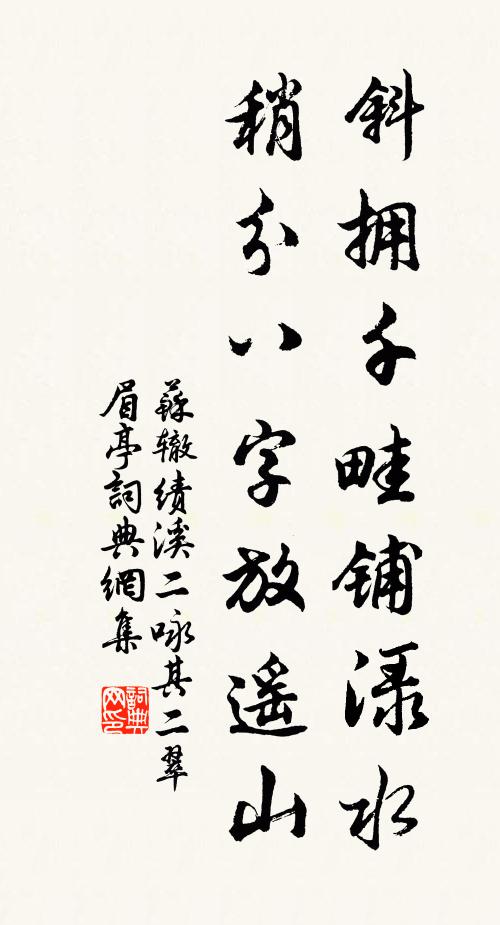 斜拥千畦铺渌水
稍分八字放遥山
蘇辙绩溪二咏其二翠
眉亭詞典網集
詞典网印